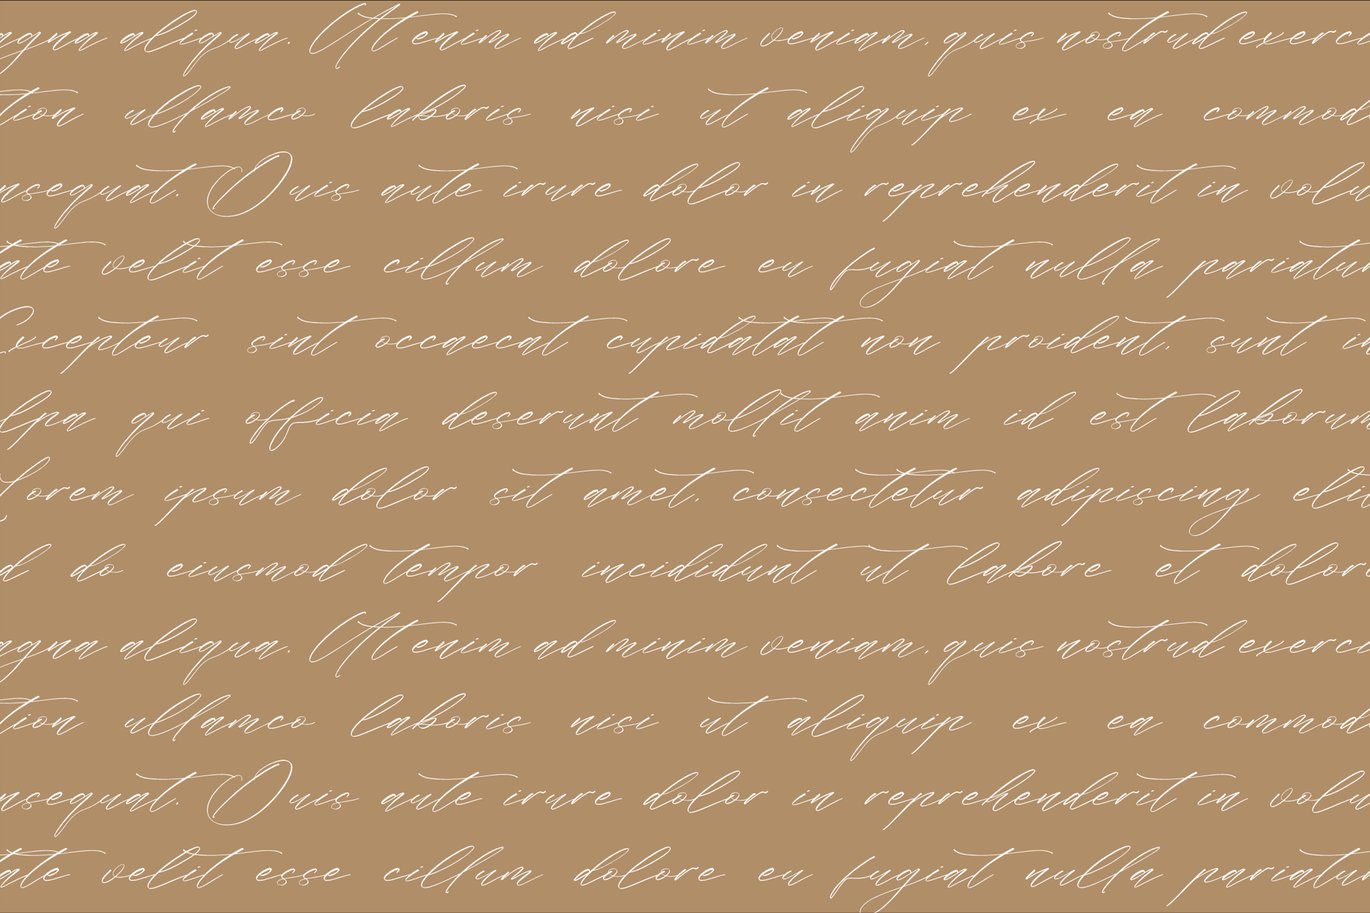 agna aliqua. Ut enim ad minim veniam, quis nostrud exerci
tion ullamco laboris nisi ut aliquip ex ea commod
nsequat. Duis aute irure dolor in reprehenderit in volu
tate velit esse cillum dolore eu fugiat nulla pariatur
Excepteur sint occaecat cupidatat non proident, sunt in
lpa qui officia deserunt mollit anim id est laborum
Lorem ipsum dolor sit amet, consectetur adipiscing elit
d do eiusmod tempor incididunt ut labore et dolore
agna aliqua. Ut enim ad minim veniam, quis nostrud exerci
tion ullamco laboris nisi ut aliquip ex ea commod
nsequat. Duis aute irure dolor in reprehenderit in volu
tate velit esse cillum dolore eu fugiat nulla pariatur